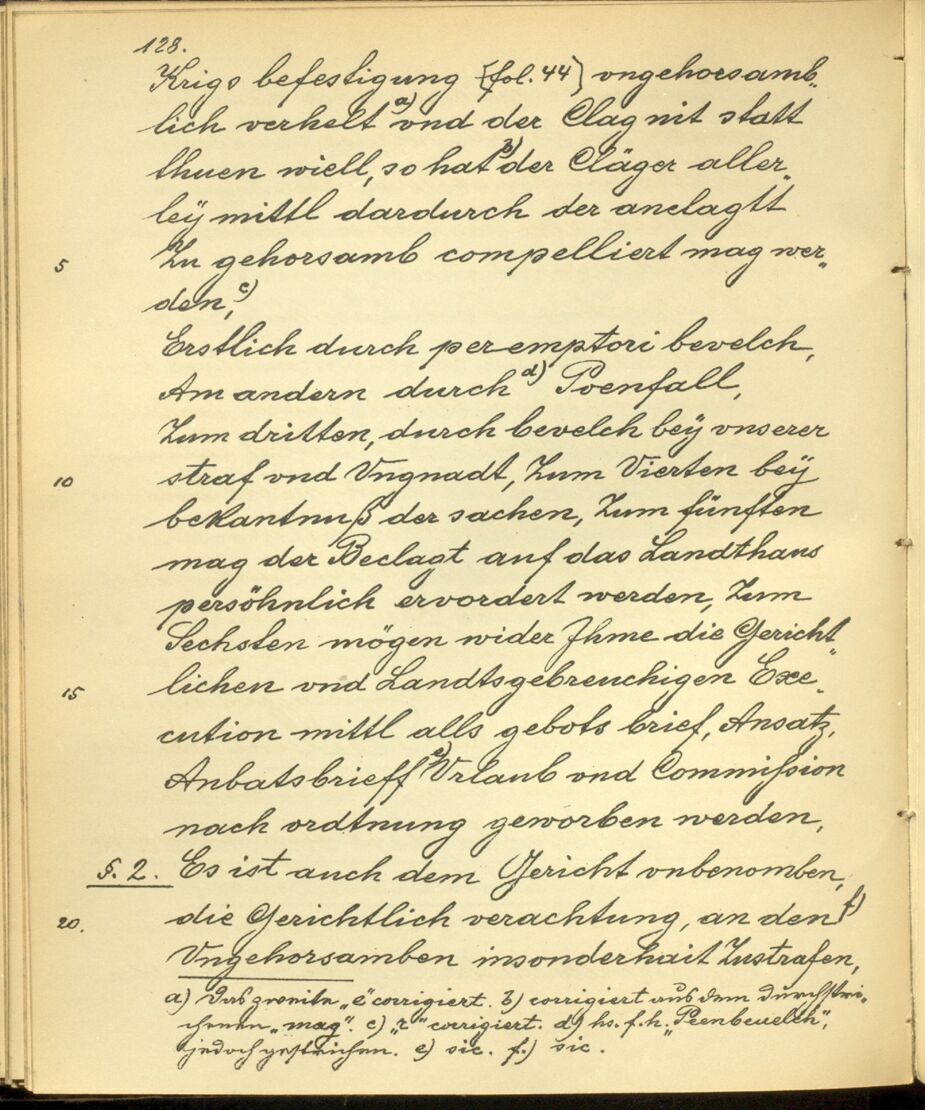 128.
Krigs befestigung [fol. 44] vngehorsamb„
lich verhelt a) vnd der Clag nit statt
thuen wiell, so hat b) der Cläger aller„
leÿ mittl dardurch der anclagtt
Zu gehorsamb compelliert mag wer„
5
den, c)
Erstlich durch per emptori bevelch,
Am andern durch d) Poenfall,
Zum dritten, durch bevelch beÿ vnserer
straf vnd Vngnadt, Zum Vierten beÿ
10
bekantnuß der sachen, Zum fünften
mag der Beclagt auf das Landthaus
persöhnlich ervordert werden, Zum
Sechsten mögen wider Jhme die Gericht„
lichen vnd Landtsgebreuchigen Exe„
15
cution mittl alls gebots brief, Ansatz,
Anbatsbrieff e) Vrlaub vnd Commission
nach ordtnung geworben werden,
§. 2. Es ist auch dem Gericht vnbenomben,
die Gerichtlich verachtung, an den f)
20.
Vngehorsamben insonderhait Zustrafen,
a) Das zweite „e“ corrigiert. b) corrigiert aus dem durchstri„
chenen „mag“. c) „r“ corrigiert. d) hs. f. h. „Peenbeuelch“,
jedoch gestrichen. e) sic. f.) sic.